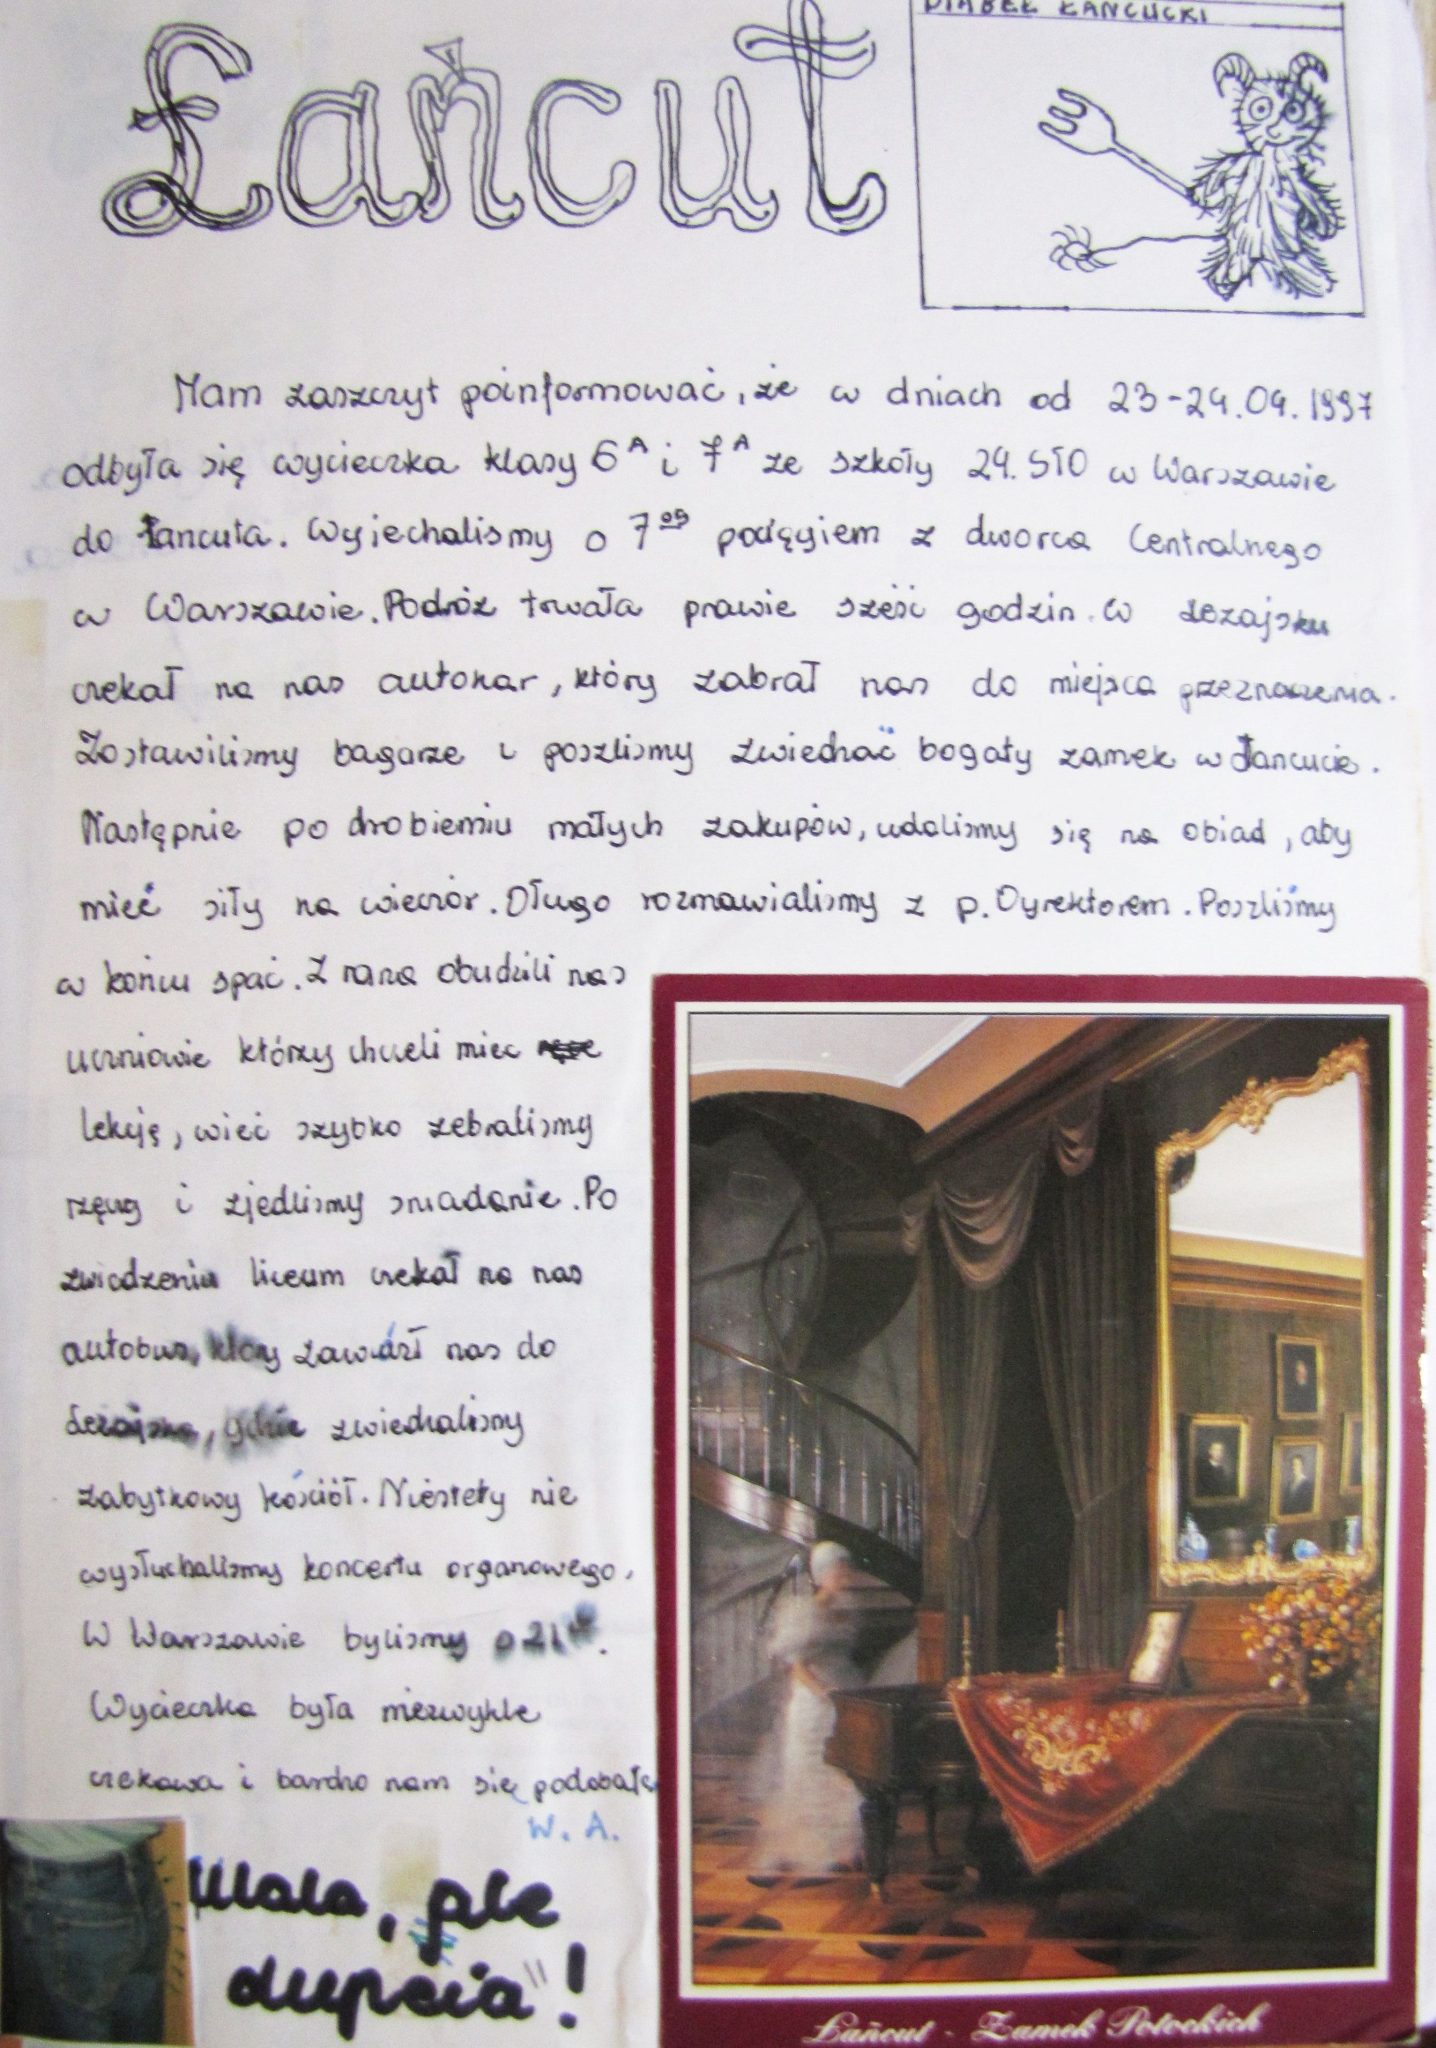 Łańcut
DIABEŁ ŁAŃCUCKI
Mam zaszczyt poinformować, że w dniach od 23-24.04.1997
odbyła się wycieczka klasy 6A i 7A ze szkoły 24. STO w Warszawie
do Łancuta. Wyjechalismy o 7 pociągiem z dworca Centralnego
w Warszawie. Podróż trwała prawie sześć godzin. W Leżajsku
czekał na nas autokar, który zabrał nas do miejsca przeznaczenia.
Zostawilismy bagarze i poszlismy zwiedzać bogaty zamek w Łancucie.
Następnie po zrobieniu małych zakupów, udalismy się na obiad, aby
mieć siły na wieczór. Długo rozmawialismy z p. Dyrektorem. Poszliśmy
w końcu spać. Z rana obudzili nas
uczniowie którzy chcieli miec
lekcję, wieć szybko zebralismy
rzęczy i zjedlismy sniadanie. Po
zwiedzeniu liceum czekał na nas
autobus, który zawiózł nas do
Leżajska, gdzie zwiedzalismy
zabytkowy kościół. Niestety nie
wysłuchalismy koncertu organowego.
W Warszawie bylismy o 21
Wycieczka była niezwykle
ciekawa i bardzo nam się podobała
W. A.
Mała, ale
dupcia"!
Łańcut - Zamek Potockich